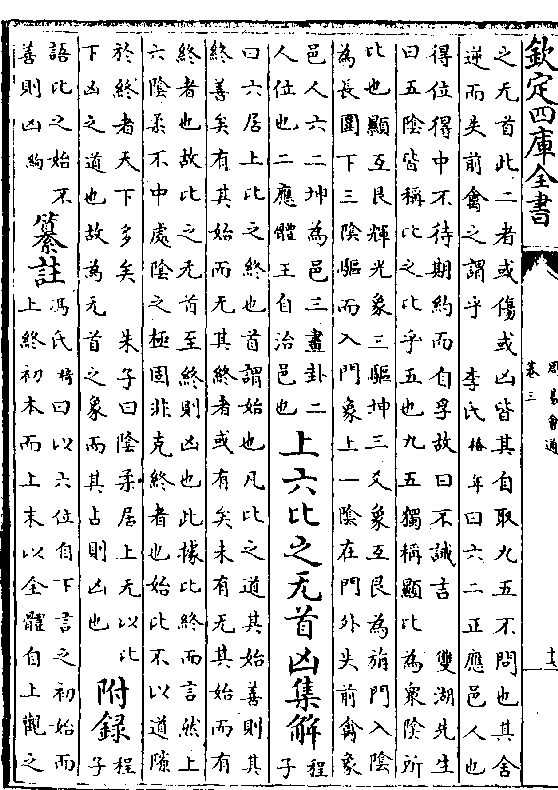 欽定四庫全書
周易會通
卷三
之无首此二者或傷或凶皆其自取九五不問也其舍
逆而失前禽之謂乎 李氏椿年曰六二正應邑人也
得位得中不待期約而自孚故曰不誡言 雙湖先生
曰五陰皆稱比之比乎五也九五獨稱顯比為衆陰所
比也顯互艮輝光象三驅坤三爻象互艮為旃門入陰
為長圍下三陰驅而入門象上一陰在門外失前禽象
邑人六二坤為邑三畫卦二
人位也二應體王自治邑也
上六比之无首凶集解
程子
曰六居上比之終也首謂始也凡比之道其始善則其
終善矣有其始而无其終者或有矣未有无其始而有
終者也故比之无首至終則凶也此據比終而言然上
六陰柔不中處陰之極固非克終者也始比不以道隙
於終者天下多矣 朱子曰陰柔居上无以比
下凶之道也故為无首之象而其占則凶也
附録
程子
語比之始不
善則凶絢
纂註
馮氏椅曰以六位自下言之初始而
上終初本而上末以全體自上觀之